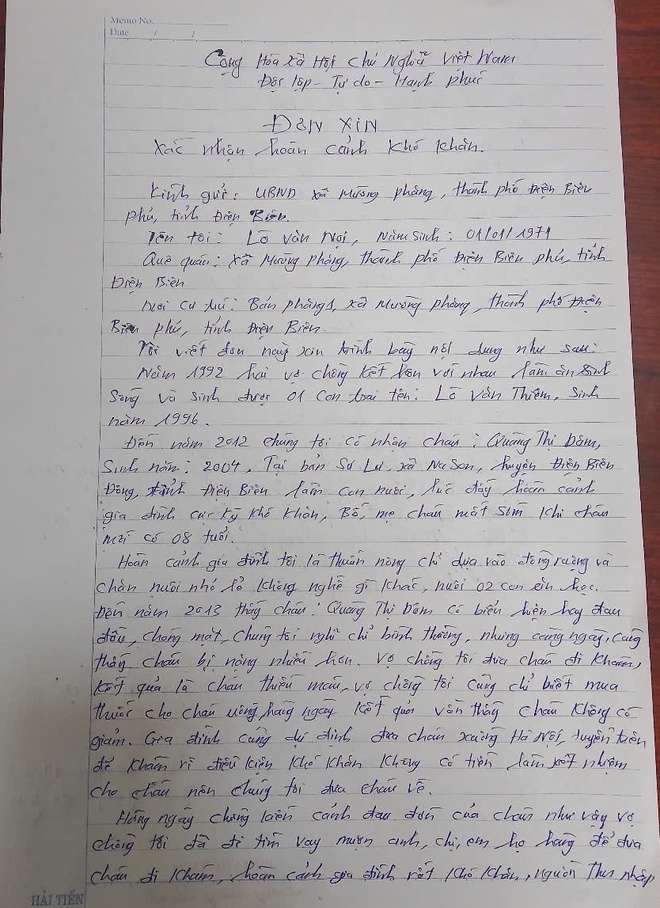 Memo No.
Date / /
Cộng Hòa Xã Hội Chủ Nghĩa Việt Nam
Độc lập - Tự do - Hạnh phúc
ĐƠN XIN
Xác nhận hoàn cảnh khó khăn.
Kính gửi: UBND xã Mường phăng, thành phố Điện Biên
phủ, tỉnh Điện Biên.
Tên tôi: Lò Văn Nọi, Năm sinh: 01/01/1971
Quê quán: xã Mường phăng, thành phố Điện Biên phủ, tỉnh
Điện Biên
Nơi cư trú: Bản phăng 1, xã Mường phăng, thành phố Điện
Biên phủ, tỉnh Điện Biên
Tôi viết đơn này xin trình bày nội dung như sau:
Năm 1992 hai vợ chồng kết hôn với nhau làm ăn sinh
sống và sinh được 01 con trai tên: Lò Văn Thiêm, sinh
năm 1996.
Đến năm 2012 chúng tôi có nhận cháu: Quàng Thị Dôm,
Sinh năm: 2004, Tại bản Sư Lư, xã Na Son, huyện Điện Biên
Đông, tỉnh Điện Biên làm con nuôi, lúc đấy hoàn cảnh
gia đình cực kỳ khó khăn, Bố, mẹ cháu mất sớm khi cháu
mới có 08 tuổi.
Hoàn cảnh gia đình tôi là thuần nông chỉ dựa vào đồng ruộng và
chăn nuôi nhỏ lẻ không nghề gì khác, nuôi 02 con ăn học.
Đến năm 2013 thấy cháu: Quàng Thị Dôm có biểu hiện hay đau
đầu, chóng mặt, chúng tôi nghĩ chỉ bình thường, nhưng càng ngày, càng
thấy cháu bị nặng nhiều hơn. Vợ chồng tôi đưa cháu đi khám,
kết quả là cháu thiếu máu, vợ chồng tôi cũng chỉ biết mua
thuốc cho cháu uống hàng ngày kết quả vẫn thấy cháu không có
giảm. Gia đình cũng dự định đưa cháu xuống Hà Nội, tuyến trên
để khám vì điều kiện khó khăn không có tiền làm xét nghiệm
cho cháu nên chúng tôi đưa cháu về.
Hàng ngày chứng kiến cảnh đau đớn của cháu như vậy vợ
chồng tôi đã đi tìm vay mượn anh, chị, em họ hàng để đưa
cháu đi khám, hoàn cảnh gia đình rất khó khăn, nguồn thu nhập
HẢI TIẾN